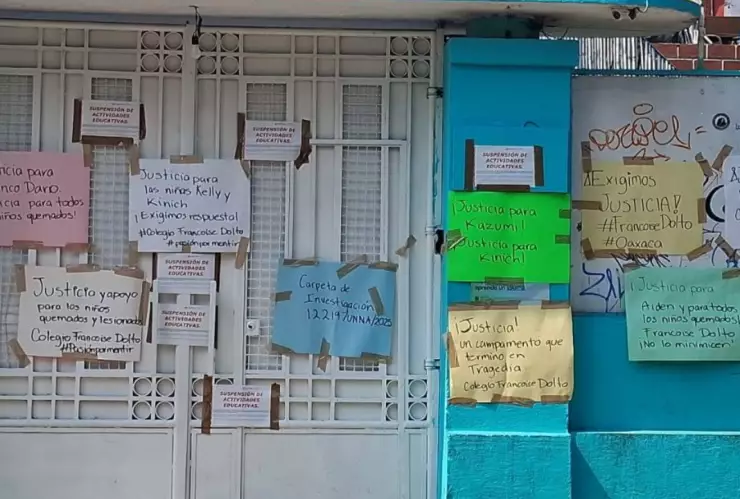 SUSPENSIÓN DE
ACTIVIDADES
EDUCATIVAS.
para
Dario.
para todos
niños quemados!
Justicia para
las niñas Kelly y
Kinich
¡Exigimos respuesta!
#Colegio Francoise Dolto
#posiónpormantir
SUSPENSIÓN DE
ACTIVIDADES
EDUCATIVAS.
Justicia y apoyo
para los niños
quemados y lesionados
Colegio Francoise Dolto
SUSPENSIÓN DE
ACTIVIDADES
EDUCATIVAS.
SUSPENSIÓN DE
ACTIVIDADES
EDUCATIVAS.
Carpeta de
Investigación
SUSPENSIÓN DE
ACTIVIDADES
EDUCATIVAS.
SUSPENSIÓN DE
ACTIVIDADES
EDUCATIVAS.
¡Justicia para
Kazumi!
¡Justicia para
Kinich!
¡Justicia!
un campamento que
termino en
Tragedia
Colegio Francoise Dolto
¡Exigimos
JUSTICIA!
#Francoise Dolto
#Oaxaca
¡Justicia para
Aiden y para todos
los niños quemados!
Francoise Dolto
¡No lo minimicen!